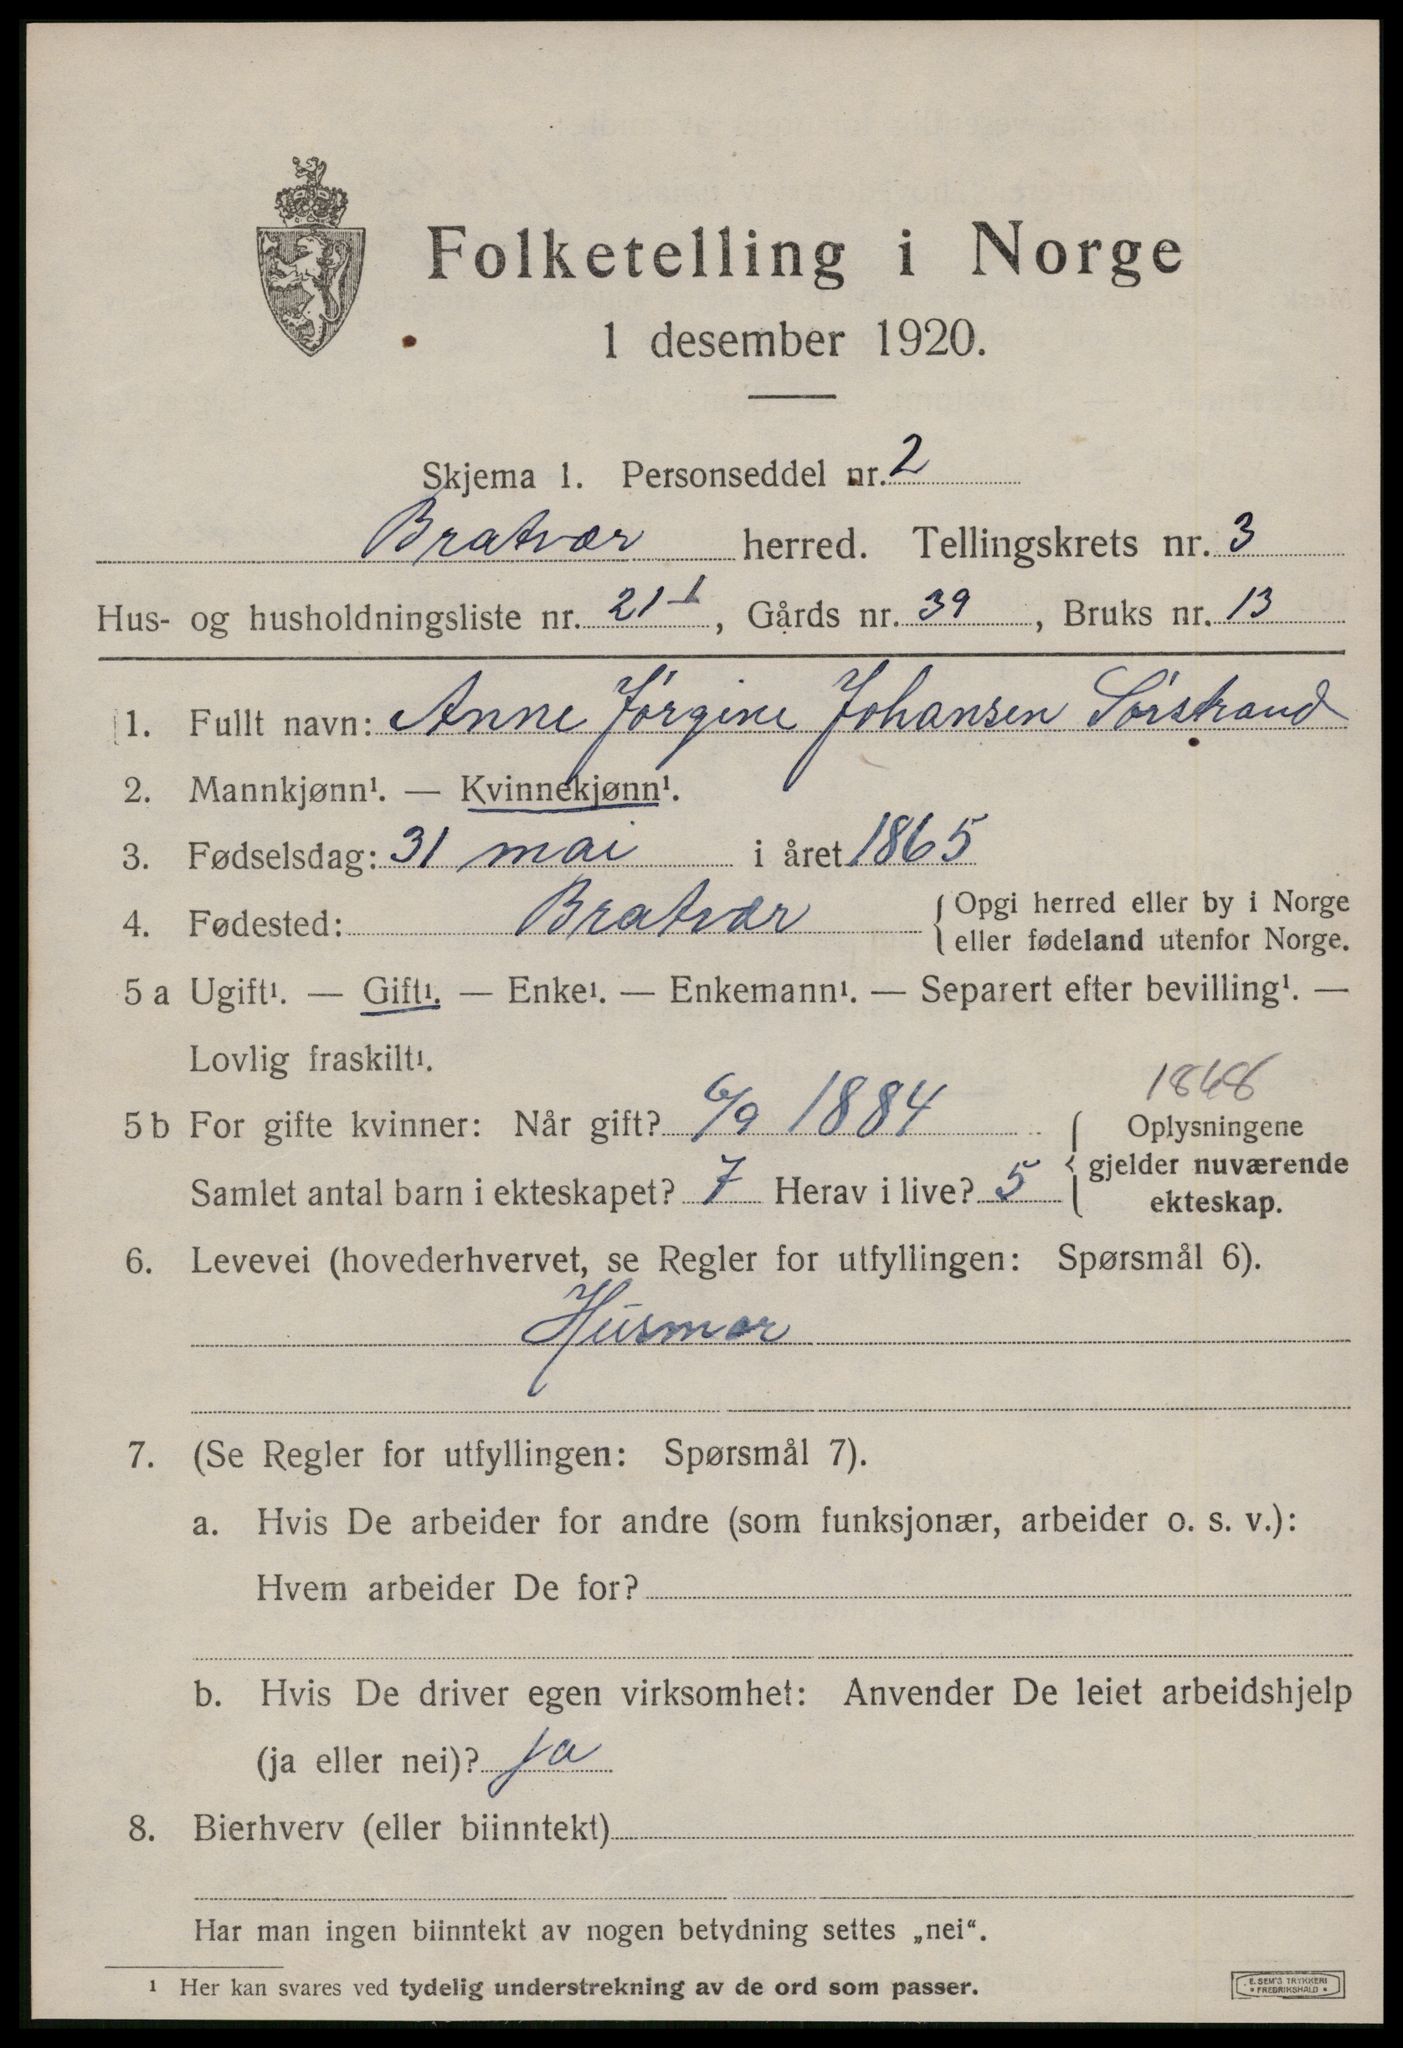 Folketelling i Norge
1 desember 1920.
Skjema 1. Personseddel nr. 2
Bratvær herred. Tellingskrets nr. 3
Hus- og husholdningsliste nr. 21-1, Gårds nr. 39, Bruks nr. 13
1. Fullt navn: Anne Jørgine Johansen Sørstrand
2. Mannkjønn¹. — Kvinnekjønn¹.
3. Fødselsdag: 31 mai i året 1865
4. Fødested: Bratvær { Opgi herred eller by i Norge
eller fødeland utenfor Norge.
5 a Ugift¹. — Gift¹. — Enke¹. — Enkemann¹. — Separert efter bevilling¹. —
Lovlig fraskilt¹.
5 b For gifte kvinner: Når gift? 6/9 1884
Samlet antal barn i ekteskapet? 7 Herav i live? 5
Oplysningene
gjelder nuværende
ekteskap.
6. Levevei (hovederhvervet, se Regler for utfyllingen: Spørsmål 6).
Husmor
7. (Se Regler for utfyllingen: Spørsmål 7).
a. Hvis De arbeider for andre (som funksjonær, arbeider o. s. v.):
Hvem arbeider De for?
b. Hvis De driver egen virksomhet: Anvender De leiet arbeidshjelp
(ja eller nei)? ja
8. Bierhverv (eller biinntekt)
Har man ingen biinntekt av nogen betydning settes „nei“.
¹ Her kan svares ved tydelig understrekning av de ord som passer.
E. SEM'S TRYKKERI
FREDRIKSHALD